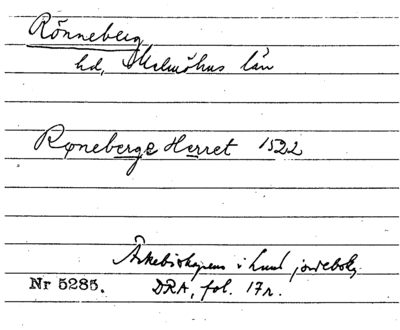 Rönneberg
hd, Malmöhus län
Røneberge Herret 1522
Ärkebiskopens i Lund jordebok,
Nr 5285. DRA, fol. 17r.